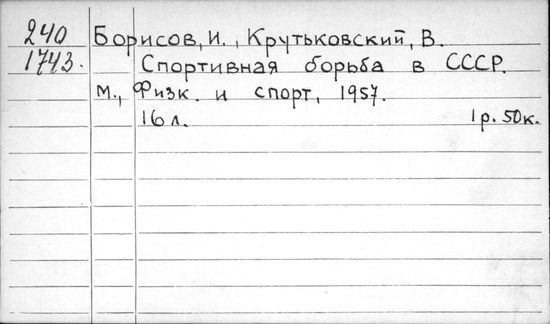 240 Борисов, И., Крутьковский, В.
1743. Спортивная борьба в СССР.
М., Физк. и спорт, 1957.
16 л. 1 р. 50 к.